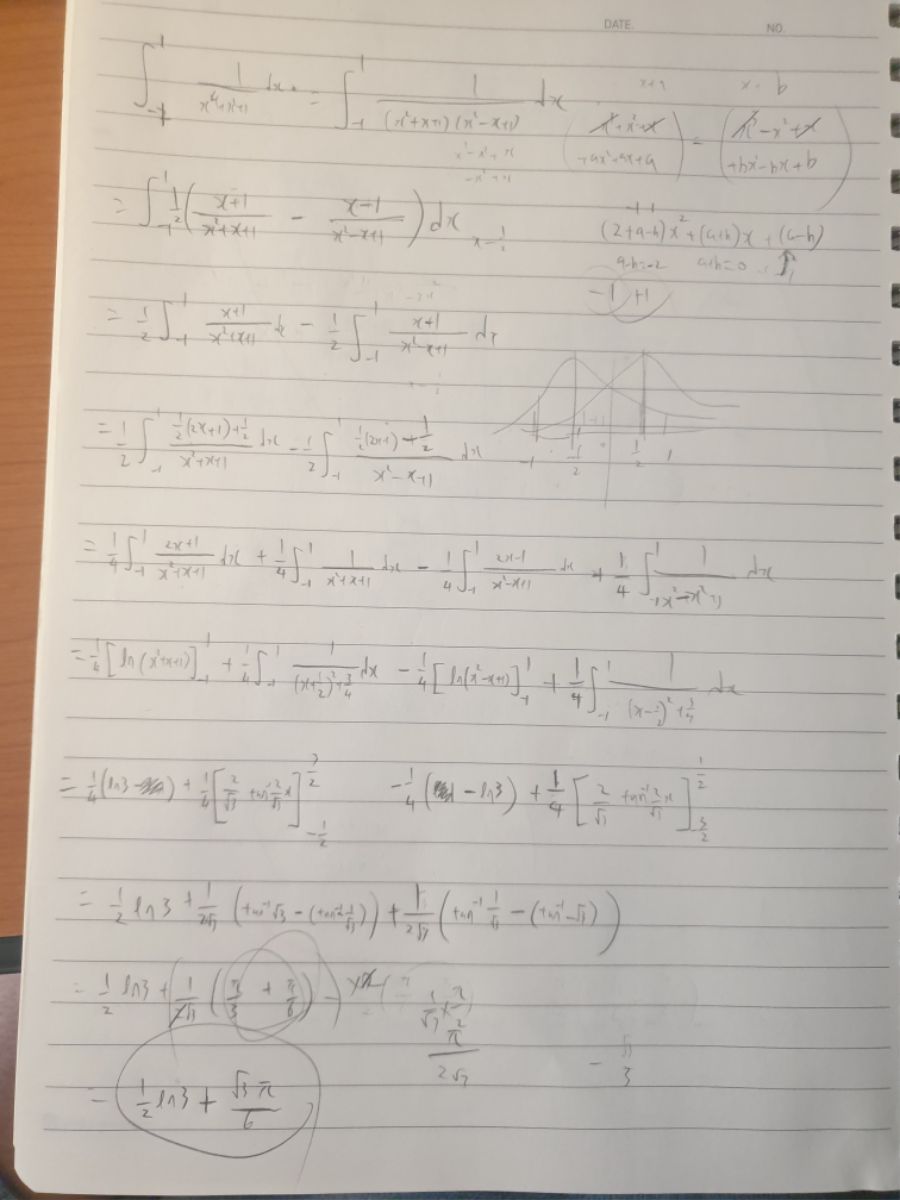 DATE. NO.
∫_{-1}^{1} 1/(x⁴+x²+1) dx = ∫_{-1}^{1} 1/((x²+x+1)(x²-x+1)) dx
(x³+x²+x +ax²+ax+a) = (x³-x²+x +bx²-bx+b)
= ∫_{-1}^{1} 1/2 ((x+1)/(x²+x+1) - (x-1)/(x²-x+1)) dx
(2+a-b)x²+(a+b)x+(a-b)
a-b=-2 a+b=0
-1 +1
= 1/2 ∫_{-1}^{1} (x+1)/(x²+x+1) dx - 1/2 ∫_{-1}^{1} (x+1)/(x²-x+1) dx
= 1/2 ∫_{-1}^{1} (1/2(2x+1)+1/2)/(x²+x+1) dx - 1/2 ∫_{-1}^{1} (1/2(2x-1)+1/2)/(x²-x+1) dx
-1 -1/2 1/2 1
= 1/4 ∫_{-1}^{1} (2x+1)/(x²+x+1) dx + 1/4 ∫_{-1}^{1} 1/(x²+x+1) dx - 1/4 ∫_{-1}^{1} (2x-1)/(x²-x+1) dx + 1/4 ∫_{-1}^{1} 1 dx
= 1/4 [ln(x²+x+1)]_{-1}^{1} + 1/4 ∫_{-1}^{1} 1/((x+1/2)²+3/4) dx - 1/4 [ln(x²-x+1)]_{-1}^{1} + 1/4 ∫_{-1}^{1} 1/((x-1/2)²+3/4) dx
= 1/4 (ln3) + 1/4 [2/√3 tan⁻¹ 2/√3 x]_{-1/2}^{3/2} - 1/4 (-ln3) + 1/4 [2/√3 tan⁻¹ 2/√3 x]_{-3/2}^{1/2}
= 1/2 ln3 + 1/(2√3) (tan⁻¹√3 - (tan⁻¹-1/√3)) + 1/(2√3) (tan⁻¹ 1/√3 - (tan⁻¹-√3))
= 1/2 ln3 + 1/(2√3) (π/3 + π/6) 1/√3 × π/2
π/(2√3) √3/3
= 1/2 ln3 + √3π/6